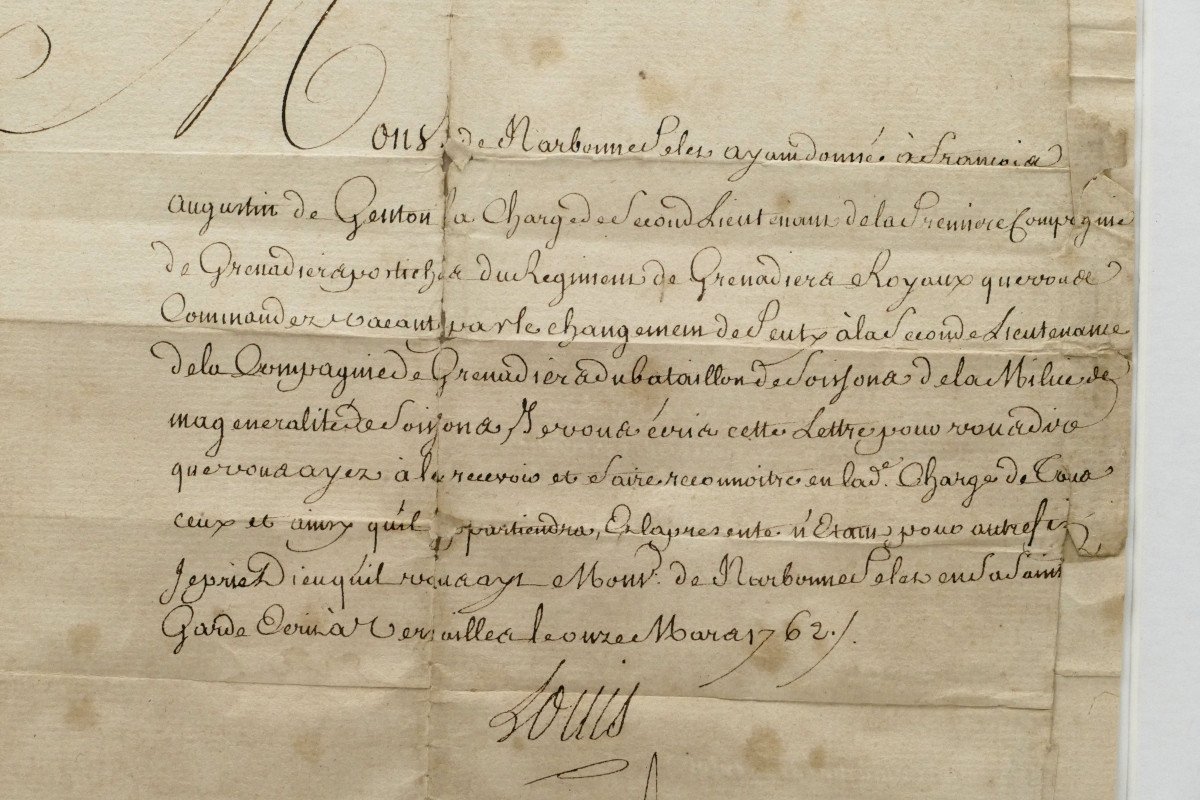 Mons. de Narbonne Pelet ayant donné à François
Augustin de Genton la Charge de Second Lieutenant de la Premiere Compagnie
de Grenadiers postiches du Regiment de Grenadiers Royaux que vous
Commandez vacant par le changement de à la Seconde Lieutenance
de la Compagnie de Grenadiers du bataillon de Soissons de la Milice de
ma generalité de Soissons, Je vous écris cette Lettre pour vous dire
que vous ayez à le recevoir et faire reconnoitre en lad.e Charge de Tous
ceux et ainsy qu'il apartiendra, Et la presente n'Etant pour autre fin
Je prie Dieu qu'il vous ayt Mons.r de Narbonne Pelet en Sa Sainte
Garde Ecrit à Versailles le onze Mars 1762./.
Louis